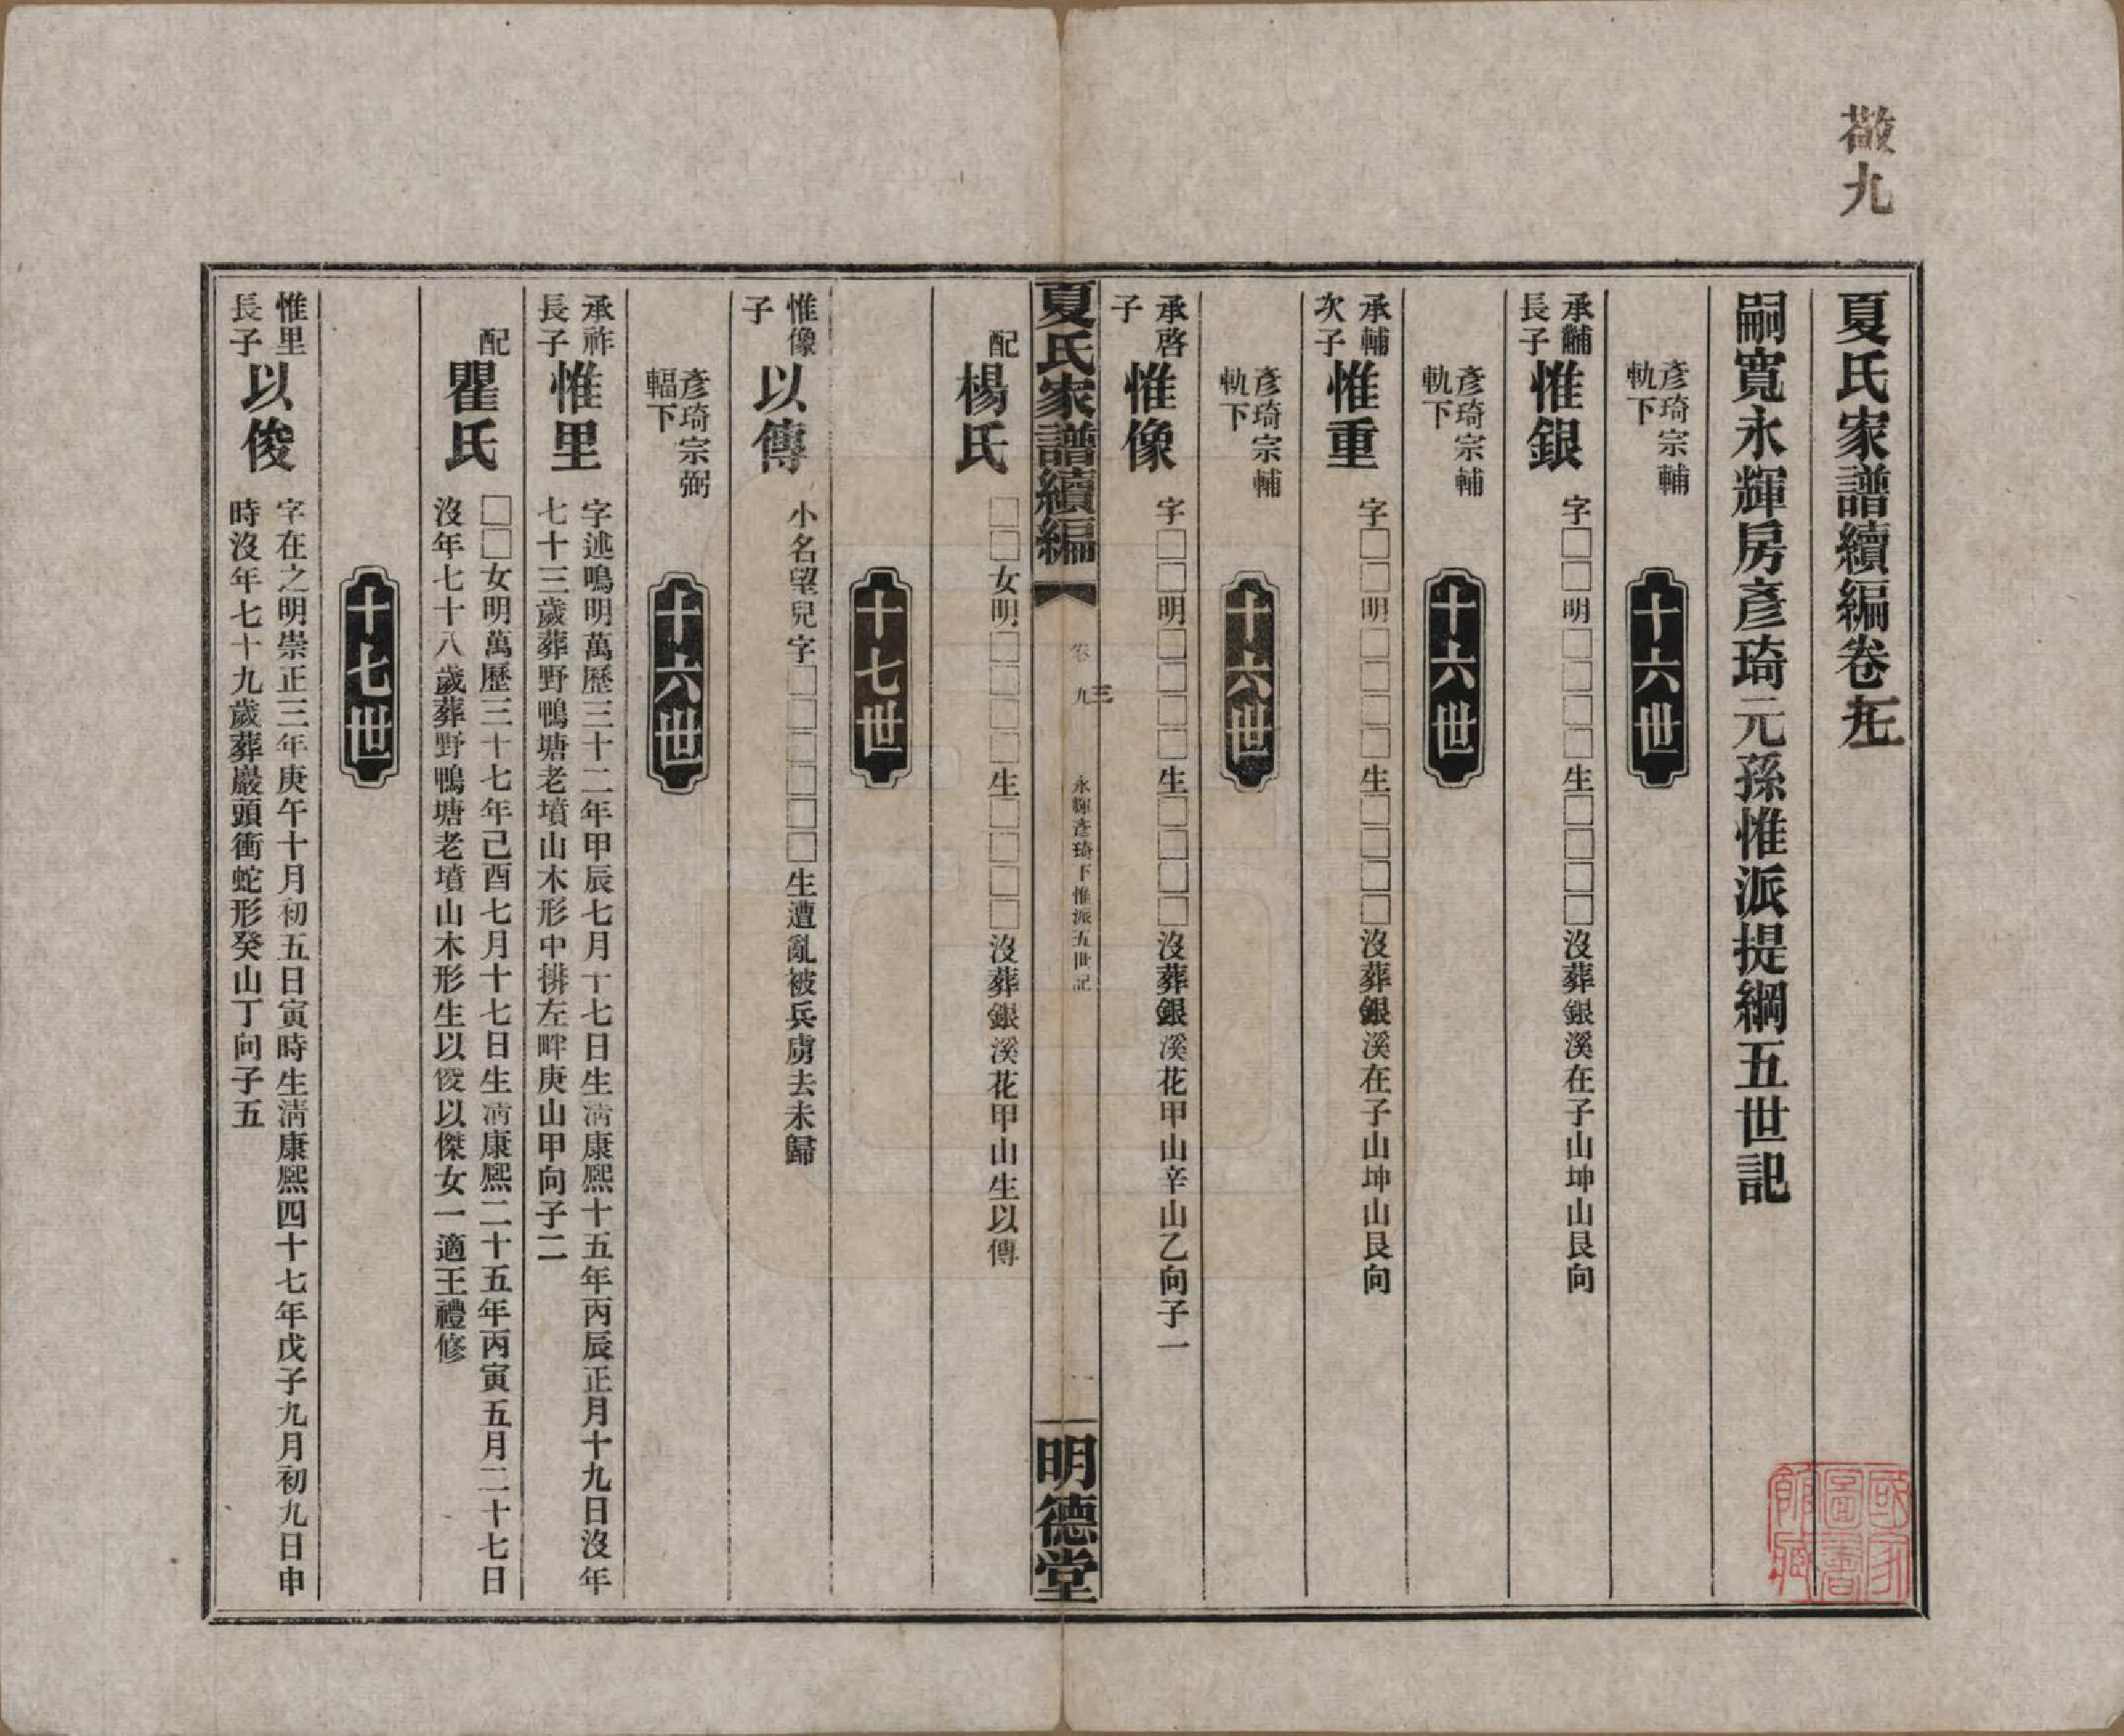 敬九
夏氏家譜續編卷九
嗣寬永輝房彥琦元孫惟派提綱五世記
彥琦宗輔
軌下
十六世
承黼
長子
惟銀
字□□明□□□□生□□□□沒葬銀溪在子山坤山艮向
彥琦宗輔
軌下
十六世
承輔
次子
惟重
字□□明□□□□生□□□□沒葬銀溪在子山坤山艮向
彥琦宗輔
軌下
十六世
承啓
子
惟像
字□□明□□□□生□□□□沒葬銀溪花甲山辛山乙向子一
夏氏家譜續編
卷九
三
永輝彥琦下惟派五世記
一
明德堂
配
楊氏
□□女明□□□□生□□□□沒葬銀溪花甲山生以傳
十七世
惟像
子
以傳
小名望兒字□□□□□□生遭亂被兵虜去未歸
彥琦宗弼
輻下
十六世
承祚
長子
惟里
字述鳴明萬歷三十二年甲辰七月十七日生清康熙十五年丙辰正月十九日沒年
七十三歲葬野鴨塘老墳山木形中排左畔庚山甲向子二
配
瞿氏
□□女明萬歷三十七年己酉七月十七日生清康熙二十五年丙寅五月二十七日
沒年七十八歲葬野鴨塘老墳山木形生以俊以傑女一適王禮修
十七世
惟里
長子
以俊
字在之明崇正三年庚午十月初五日寅時生清康熙四十七年戊子九月初九日申
時沒年七十九歲葬巖頭衝蛇形癸山丁向子五
國家圖書館藏